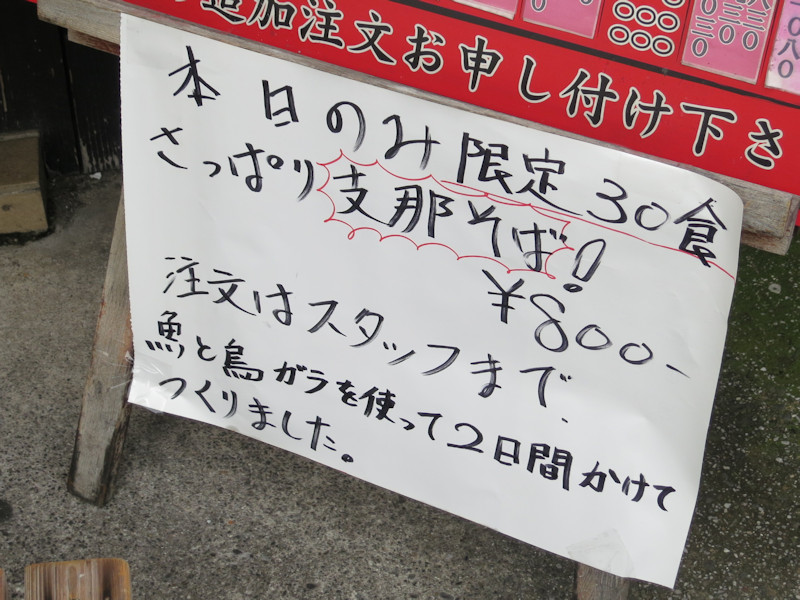 追加注文お申し付け下さ
本日のみ限定30食
さっぱり支那そば!
¥800-
注文はスタッフまで.
魚と鳥ガラを使って2日間かけて
つくりました。